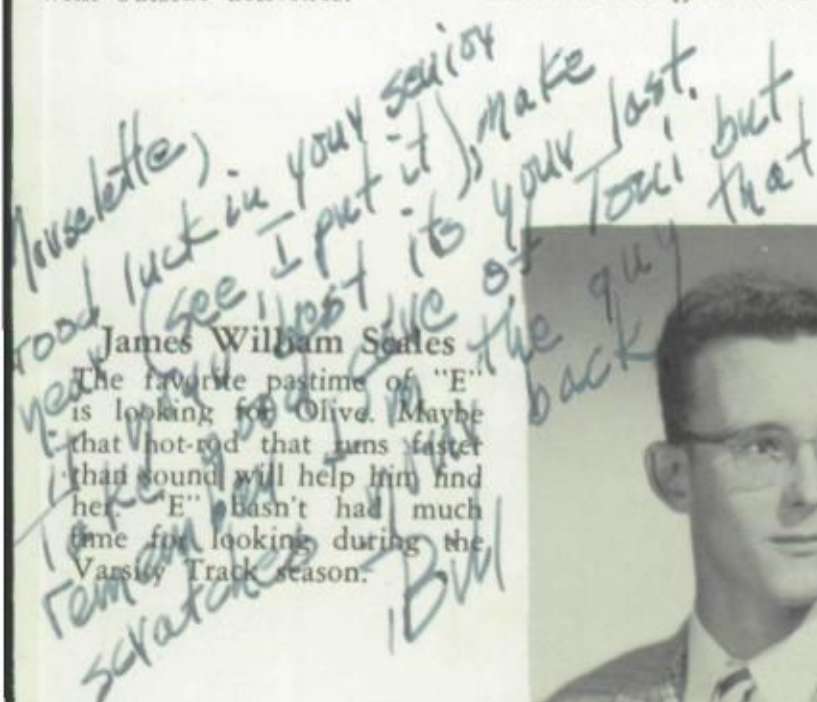 Mouselette,
Good luck in your senior
year (see I put it), make
it your best its your last.
Take good care of Toni but
remember I'm the guy that
scratches your back
Bill
James William Scales
The favorite pastime of "E"
is looking for Olive. Maybe
that hot-rod that runs faster
than sound will help him find
her. "E" hasn't had much
time for looking during the
Varsity Track season.